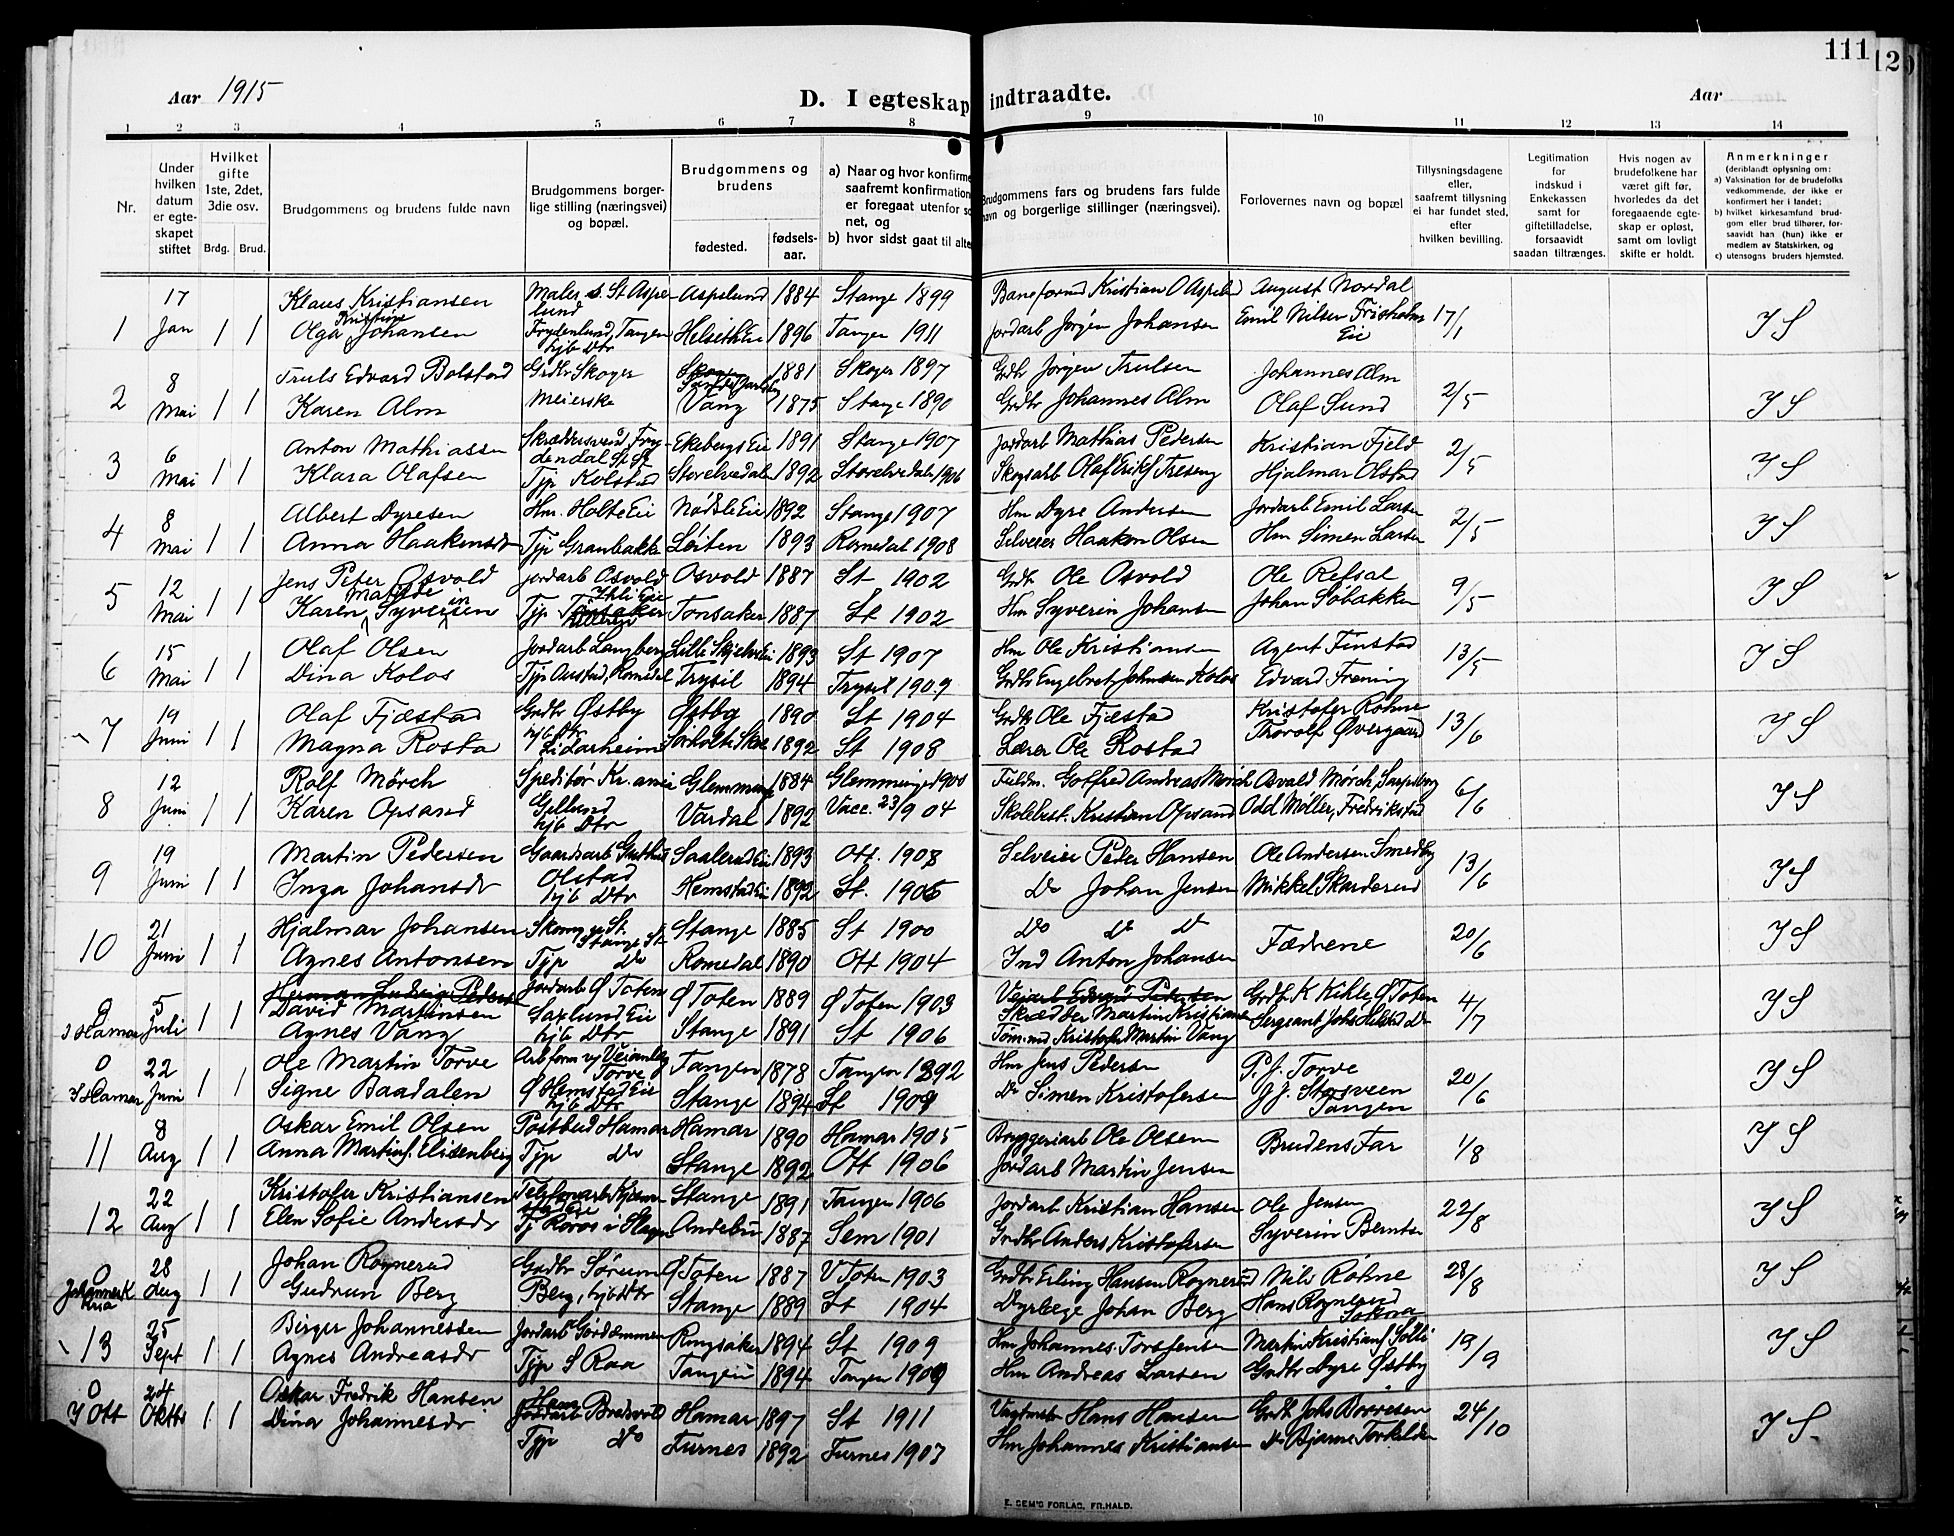 111
12
Aar 1915
D. I egteskap indtraadte.
Aar
1 2 3 4 5 6 7 8 9 10 11 12 13 14
Nr.
Under hvilken datum er egteskapet stiftet
Hvilket gifte 1ste, 2det, 3die osv.
Brdg. Brud.
Brudgommens og brudens fulde navn
Brudgommens borgerlige stilling (næringsvei) og bopæl.
Brudgommens og brudens
fødested.
fødselsaar.
a) Naar og hvor konfirme
saafremt konfirmation
er foregaat utenfor so
net, og
b) hvor sidst gaat til alte
Brudgommens fars og brudens fars fulde
navn og borgerlige stillinger (næringsvei).
Forlovernes navn og bopæl
Tillysningsdagene eller, saafremt tillysning ei har fundet sted, efter hvilken bevilling.
Legitimation for indskud i Enkekassen samt for giftetilladelse, forsaavidt saadan tiltrænges.
Hvis nogen av brudefolkene har været gift før, hvorledes da det foregaaende egteskap er opløst, samt om lovligt skifte er holdt.
Anmerkninger
(deriblandt oplysning om:
a) Vaksination for de brudefolks vedkommende, der ikke er konfirmert her i landet;
b) hvilket kirkesamfund brudgom eller brud tilhører, forsaavidt han (hun) ikke er medlem av Statskirken, og
c) utensogns bruders hjemsted.
1 17 Jan 1 1 Klaus Kristiansen Maler s. St Aspelund Aspelund 1884 Stange 1899 Baneformd Kristian O Aspelund August Nordal 17/1 I S
Olga Kristine Johansen Frydenlund, Tangen hjb Dtr Helseth Eie 1896 Tangen 1911 Jordarb Jørgen Johansen Emil Nilsen Frisholm Eie
2 8 Mai 1 1 Truls Edvard Bolstad Grdbr Skoger 1881 Skoger 1897 Grdbr Jørgen Trulsen Johannes Alm 2/5 I S
Karen Alm Meierske Vang 1875 Stange 1890 Grdbr Johannes Alm Olaf Sund
3 6 Mai 1 1 Anton Mathiassen Skræddersvend, Frydendal St St Ekebergs Eie 1891 Stange 1907 Jordarb Mathias Pedersen Kristian Fjeld 2/5 I S
Klara Olafsen Tjp Kolstad Storelvedalen 1892 Storelvedalen 1906 Skogsarb Olaf Eriks Treseng Hjalmar Olstad
4 8 Mai 1 1 Albert Dyresen Hm. Holte Eie Nødsle Eie 1892 Stange 1907 Hm Dyre Andersen Jordarb Emil Larsen 2/5 I S
Anna Haakensdr Tjp Granbakke Løiten 1893 Romedal 1908 Selveier Haaken Olsen Hm Simen Larsen
5 12 Mai 1 1 Jens Peter Osvold Jordarb Osvold Osvold 1887 St 1902 Grdbr Ole Osvold Ole Refsal 9/5 I S
Karen Matilde Syversen Tjp Tonsaker 1887 St 1902 Hm Syverin Johansen Johan Sobakken
6 15 Mai 1 1 Olaf Olsen Jordarb Langberg Lille Skjelve Eie 1893 St 1907 Hm Ole Kristiansen Agent Finstad 13/5 I S
Dina Kolos Tjp Austad, Romedal Trysil 1894 Trysil 1909 Grdbr Engebret Johnsen Kolos Edvard Frening
7 19 Juni 1 1 Olaf Fjæstad Grdbr Østby Østby 1890 St 1904 Grdbr Ole Fjæstad Kristofer Røhne 13/6 I S
Magna Rostad hjb Dtr Lidarheim Sørholte Skole 1892 St 1908 Lærer Ole Rostad Thorolf Øvergaard
8 12 Juni 1 1 Rolf Mörch Speditør Kr.ania Glemminge 1884 Glemminge 1900 Fuldm. Gotfred Andreas Mörch Osvald Mörch, Sarpsborg 6/6 I S
Karen Opsand Gillund hjb Dtr Vardal 1892 Vacc. 23/9 04 Skolebest. Kristian Opsand Odd Møller, Fredrikstad
9 19 Juni 1 1 Martin Pedersen Gaardsarb Saalerud Eie 1893 Ott. 1908 Selveier Peder Hansen Ole Andersen Smedby 13/6 I S
Inga Johansdr Olstad hjb Dtr Hemstad Eie 1892 St. 1906 Do Johan Jensen Mikkel Skarderud
10 21 Juni 1 1 Hjalmar Johansen Skomg v St. Stange St. Stange 1885 St 1900 Do Do Do Fædrene 20/6 I S
Agnes Antonsen Tjp Do Romedal 1890 Ott 1904 Ind Anton Johansen
0 I Hamar 5 Juli 1 1 Herman Ludvig Pedersen Jordarb Ø Toten Ø Toten 1889 Ø Toten 1903 Veiarb Edvard Pedersen Grdbr K Kihle Ø Toten 4/7 I S
David Martinsen Saxlund Eie Skrædder Martin Kristiansen Sergeant Johs Helstad Do
Agnes Vang hjb Dtr Stange 1891 St 1906 Tøm.md Kristofer Martin Vang
0 I Hamar 22 Juni 1 1 Ole Martin Torve Arbform v/ Veianlæg Torve Tangen 1878 Tangen 1892 Hm Jens Pedersen P. J. Torve 20/6 I S
Signe Baadalen Ø Hemstad Eie hjb Dtr Stange 1894 St 1909 Do Simen Kristofersen J. J. Storsveen Tangen
11 8 Aug 1 1 Oskar Emil Olsen Postbud Hamar Hamar 1890 Hamar 1905 Bryggeriarb Ole Olsen Brudens Far 1/8 I S
Anna Martins. Elisenberg Tjp Do Stange 1892 Ott 1906 Jordarb Martin Jensen
12 22 Aug 1 1 Kristofer Kristiansen Telefonarb Stange 1891 Tangen 1906 Jordarb Kristian Hansen Ole Jensen 22/8 I S
Elen Sofie Andersdr Tj Roros i Slagen Andebu 1887 Sem 1901 Grdbr Anders Kristofersen Syverin Berntsen
0 Johannesk Kria 28 Aug 1 1 Johan Rognerud Grdbr Sørum Ø Toten 1887 V Toten 1903 Grdbr Erling Hansen Rognerud Nils Røhne 28/8 I S
Gudrun Berg Berg, hjb Dtr Stange 1889 St 1904 Dyrlæge Johan Berg Hans Rognerud Sokna
13 25 Sept 1 1 Birger Johannessen Jordarb Gørdæmmen Ringsaker 1894 St 1909 Hm Johannes Torstensen Martin Kristians Solli 19/9 I S
Agnes Andreasdr Tjp S Raa Tangen 1894 Tangen 1909 Hm Andreas Larsen Grdbr Dyre Østby
0 I Ott 24 Oktbr 1 1 Oskar Fredrik Hansen Bredvold Hamar 1897 St 1911 Vagtmstr Hans Hansen Grdbr Johs Børresen 24/10 I S
Dina Johannesdr Tjp Do Furnes 1892 Furnes 1907 Hm Johannes Kristiansen Do Bjarne Torkildsen
E. SEM'S FORLAG, FR.HALD.